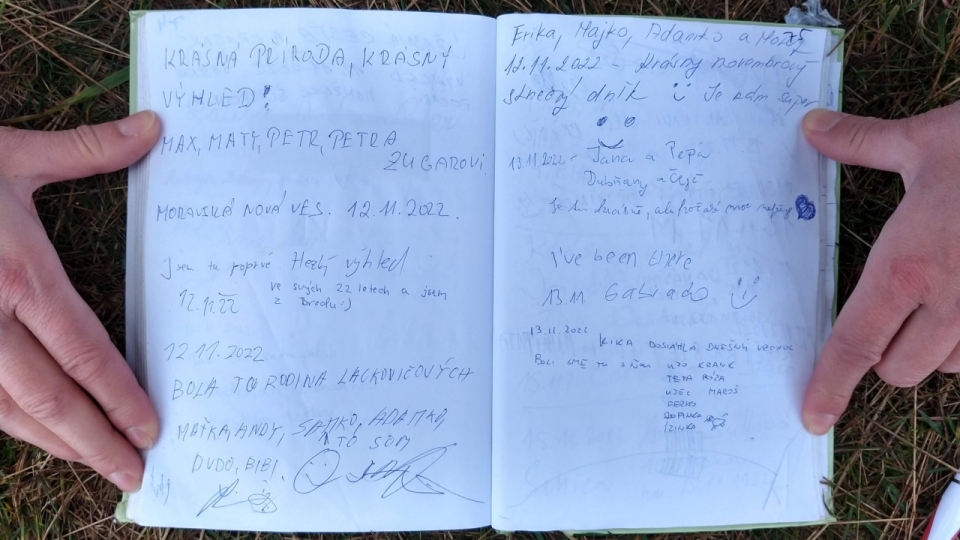 KRÁSNÁ PŘÍRODA, KRÁSNÝ
VÝHLED!
MAX, MATY, PETR, PETRA
ZUGAROVI
MORAVSKÁ NOVÁ VES. 12.11.2022.
Jsem tu poprvé Hezký výhled
ve svých 22 letech a jsem
z Brodu :)
12.11.22
12 11. 2022
BOLA TO RODINA LACKOVIČOVÝCH
MAŤKA, ANDY, SAMKO, ADAMKO,
TO SOM
DUDO, BIBI.
Erika, Majko, Adamko a
12.11.2022 - Krásny novembrový
slnečný dník Je nám super
13.11.2022 - Jana a Pepa
Dubňany
Je tu krásně,
I've been there
13.11 Gabriado
13.11.2022
KIKA DOSIAHLA DNEŠNÝ VRCHOL
BOLI SME TU S ŇOU UJO
TETA RÓZA
UJEC MAROŠ